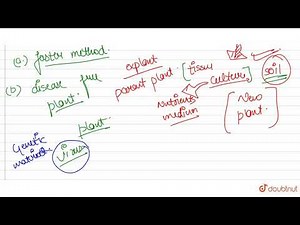 (a.) faster method.
(b) disease free
plant.
explant
parent plant.
[tissue
culture]
soil
Nutrients
medium
[New
plant.]
plant.
Genetic
material
virus
doubtnut